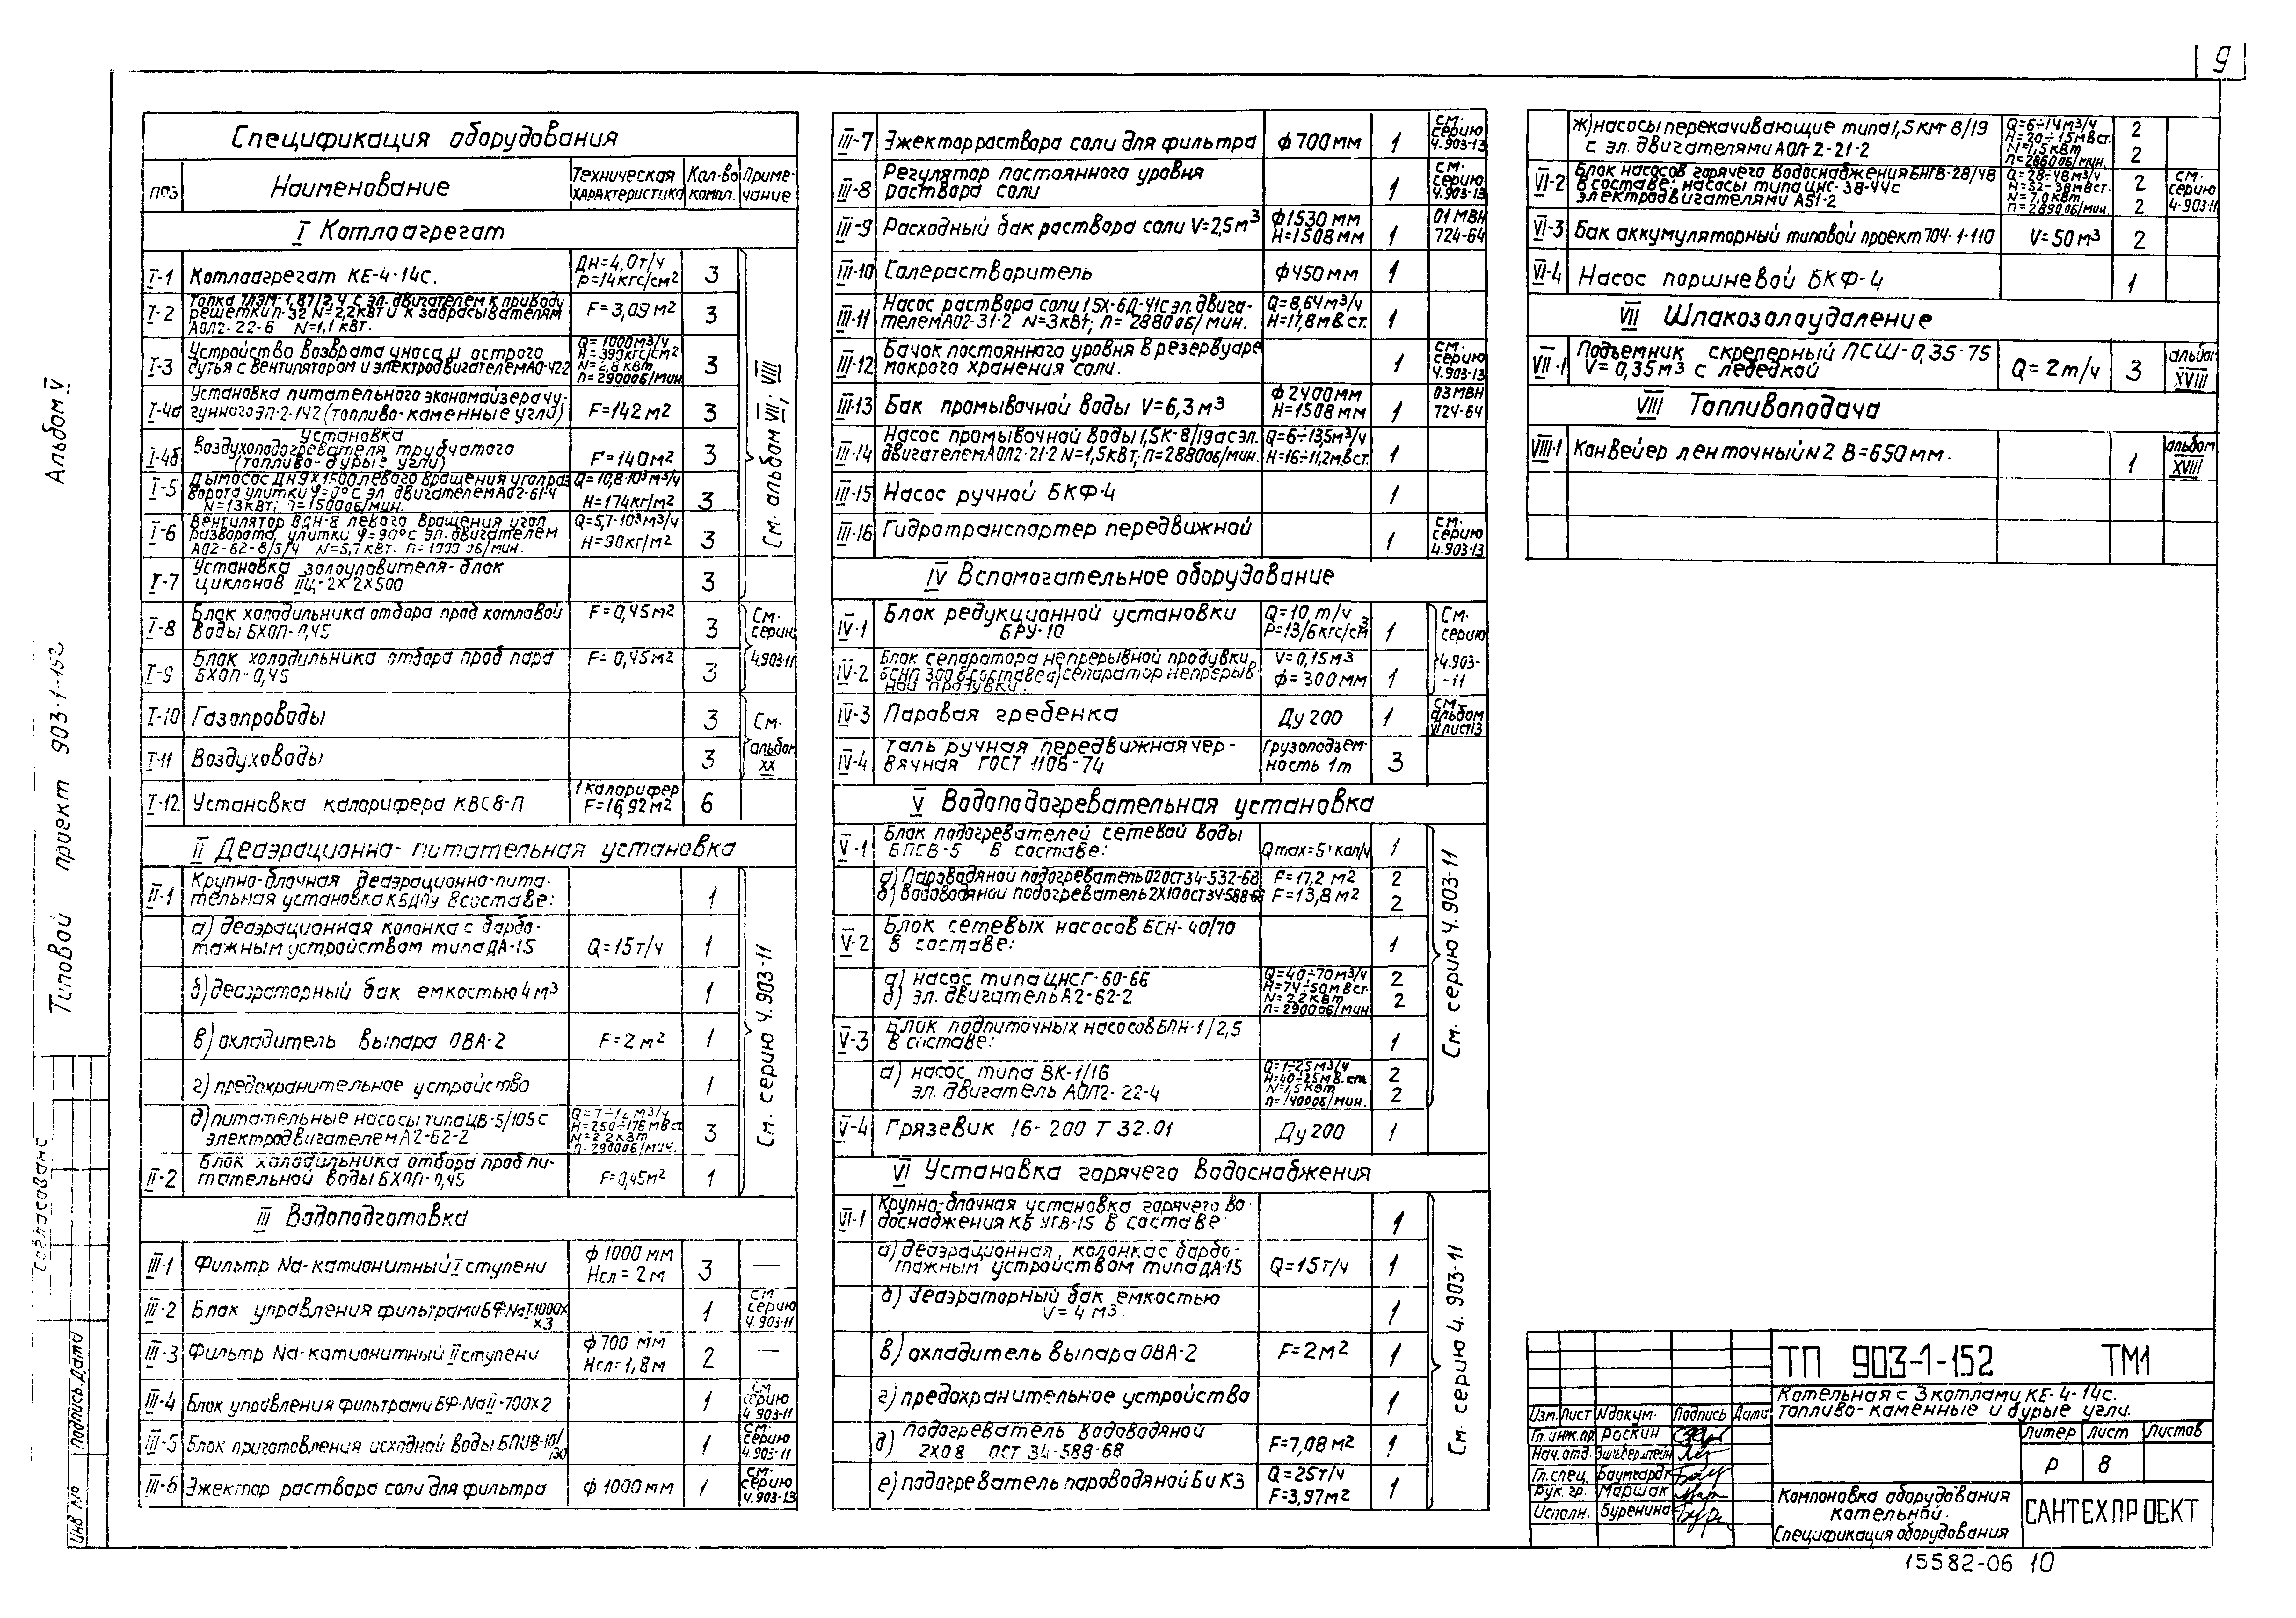 9
Альбом V
Типовой проект 903-1-152
Согласовано
Подпись. Дата
Инв №
Спецификация оборудования
поз
Наименование
Техническая характеристика
Кол-во компл.
Примечание
I Котлоагрегат
I-1 Котлоагрегат КЕ-4-14с. Дн=4,0т/ч Р=14кгс/см² 3
I-2 Топка ТЛЗМ-1,87/2,4 с эл. двигателем к приводу
решетки п-32 N=2,2квт и к забрасывателям
АОЛ2-22-6 N=1,1 квт. F=3,09м² 3
I-3 Устройство возврата уноса и острого
дутья с вентилятором и электродвигателем АО-42-2
Q=1000м³/ч
Н=390кгс/см²
N=2,8квт
п=2900об/мин 3
I-4а Установка питательного экономайзера чу-
гунного ЭП-2-142 (топливо-каменные угли) F=142м² 3
I-4б Установка
воздухоподогревателя трубчатого
(топливо-бурые угли) F=140м² 3
I-5 Дымосос ДН9х1500 левого вращения угол раз
ворота улитки φ=0° с эл двигателем АО2-61-4
N=13квт; п=1500об/мин.
Q=10,8·10³м³/ч
Н=174кг/м² 3
I-6 Вентилятор ВДН-8 левого вращения угол
разворота улитки φ=90° с эл. двигателем
АО2-62-8/6/4 N=5,7квт. п=1000 об/мин.
Q=5,7·10³м³/ч
Н=90кг/м² 3
I-7 Установка золоуловителя-блок
циклонов IIЦ-2х2х500 3
См. альбом VII; VIII
I-8 Блок холодильника отбора проб котловой
воды БХОП-0,45 F=0,45м² 3
I-9 Блок холодильника отбора проб пара
БХОП-0,45 F=0,45м² 3
См. серию 4.903-11
I-10 Газопроводы 3
I-11 Воздуховоды 3
См. альбом XX
I-12 Установка калорифера КВС8-П 1 калорифер F=16,92м² 6
II Деаэрационно-питательная установка
II-1 Крупно-блочная деаэрационно-пита-
тельная установка КБДПУ в составе: 1
а) деаэрационная колонка с барбо-
тажным устройством типа ДА-15 Q=15т/ч 1
б) деаэраторный бак емкостью 4м³ 1
в) охладитель выпара ОВА-2 F=2м² 1
г) предохранительное устройство 1
д) питательные насосы типа ЦВ-5/105 с
электродвигателем А2-62-2
Н=250÷176мвст
N=22квт
п=2900об/мин. 3
II-2 Блок холодильника отбора проб пи-
тательной воды БХОП-0,45 F=0,45м² 1
См. серию 4.903-11
III Водоподготовка
III-1 Фильтр Na-катионитный I ступени ф1000мм Нсл=2м 3 —
III-2 Блок управления фильтрами БФ-NaI-1000х
х3 1 См серию 4.903-11
III-3 Фильтр Na-катионитный II ступени ф700мм Нсл=1,8м 2 —
III-4 Блок управления фильтрами БФ-NaII-700х2 1 См серию 4.903-11
III-5 Блок приготовления исходной воды БПИВ-10/
/30 1 См. серию 4.903-11
III-6 Эжектор раствора соли для фильтра ф1000мм 1 См. серию 4.903-13
III-7 Эжектор раствора соли для фильтра ф700мм 1 См. серию 4.903-13
III-8 Регулятор постоянного уровня
раствора соли 1 См. серию 4.903-13
III-9 Расходный бак раствора соли V=2,5м³ ф1530мм Н=1508мм 1 01 МВН 724-64
III-10 Солерастворитель ф450мм 1
III-11 Насос раствора соли 1,5Х-6Д-41 с эл. двига-
телем АО2-31-2 N=3квт; п=2880об/мин. Q=8,64м³/ч Н=17,8мв.ст. 1
III-12 Бачок постоянного уровня в резервуаре
мокрого хранения соли. 1 См. серию 4.903-13
III-13 Бак промывочной воды V=6,3м³ ф2400мм Н=1508мм 1 03 МВН 724-64
III-14 Насос промывочной воды 1,5К-8/19а с эл.
двигателем АОЛ2-21-2 N=1,5квт; п=2880об/мин. Q=6÷13,5м³/ч Н=16÷11,2мв.ст. 1
III-15 Насос ручной БКФ-4 1
III-16 Гидротранспортер передвижной 1 См. серию 4.903-13
IV Вспомогательное оборудование
IV-1 Блок редукционной установки
БРУ-10 Q=10 т/ч Р=13/6кгс/см³ 1
IV-2 Блок сепаратора непрерывной продувки
БСНП 300 в составе а) сепаратор непрерыв
ной продувки. V=0,15м³ ф=300мм 1
См. серию 4.903-11
IV-3 Паровая гребенка Ду200 1 См. альбом VI лист 13
IV-4 таль ручная передвижная чер-
вячная ГОСТ 1106-74 Грузоподъем-
ность 1т 3
V Водоподогревательная установка
V-1 Блок подогревателей сетевой воды
БПСВ-5 в составе: Qmax=5г кал/ч 1
а) Пароводяной подогреватель 020СТ34-532-68 F=17,2м² 2
б) Водоводяной подогреватель 2Х10 ОСТ34-588-68 F=13,8м² 2
V-2 Блок сетевых насосов БСН-40/70
в составе: 1
а) насос типа ЦНСГ-60-66
б) эл. двигатель А2-62-2
Q=40÷70м³/ч
Н=74÷50мвст.
N=22квт
п=2900об/мин
2
2
V-3 Блок подпиточных насосов БПН-1/2,5
в составе: 1
а) насос типа ВК-1/16
эл. двигатель АОЛ2-22-4
Q=1÷2,5м³/ч
Н=40÷25мв.ст
N=1,5квт
п=1400об/мин.
2
2
V-4 Грязевик 16-200 Т 32.01 Ду200 1
См. серию 4.903-11
VI Установка горячего водоснабжения
VI-1 Крупно-блочная установка горячего во-
доснабжения КБ УГВ-15 в составе: 1
а) деаэрационная, колонка с барбо-
тажным устройством типа ДА-15 Q=15т/ч 1
б) деаэраторный бак емкостью
V=4м³. 1
в) охладитель выпара ОВА-2 F=2м² 1
г) предохранительное устройство 1
д) подогреватель водоводяной
2Х08 ОСТ 34-588-68 F=7,08м² 1
е) подогреватель пароводяной БиКЗ Q=25т/ч F=3,97м² 1
См. серию 4.903-11
ж) насосы перекачивающие типа 1,5КМ-8/19
с эл. двигателями АОЛ-2-21-2
Q=6÷14м³/ч
Н=20÷15мвст.
N=1,5квт
п=2860об/мин.
2
2
VI-2 Блок насосов горячего водоснабжения БНГВ-28/48
в составе: насосы типа ЦНС-38-44с
электродвигателями А51-2
Q=28÷48м³/ч
Н=32-38мвст.
N=7,0квт.
п=2890об/мин.
2
2
См. серию 4.903-11
VI-3 Бак аккумуляторный типовой проект 704-1-110 V=50м³ 2
VI-4 Насос поршневой БКФ-4 1
VII Шлакозолоудаление
VII-1 Подъемник скреперный ПСШ-0,35-75
V=0,35м³ с лебедкой Q=2т/ч 3 альбом XVIII
VIII Топливоподача
VIII-1 Конвейер ленточный N2 В=650мм. 1 альбом XVIII
ТП 903-1-152 ТМ1
Котельная с 3 котлами КЕ-4-14с.
Топливо-каменные и бурые угли.
Изм. Лист Nдокум. Подпись Дата
Гл.инж.пр. Раскин
Нач.отд. Зильберштейн
Гл.спец. Баумгардт
Рук. гр. Маршак
Исполн. Буренина
Литер Лист Листов
Р 8
Компоновка оборудования
котельной.
Спецификация оборудования
САНТЕХПРОЕКТ
15582-06 10